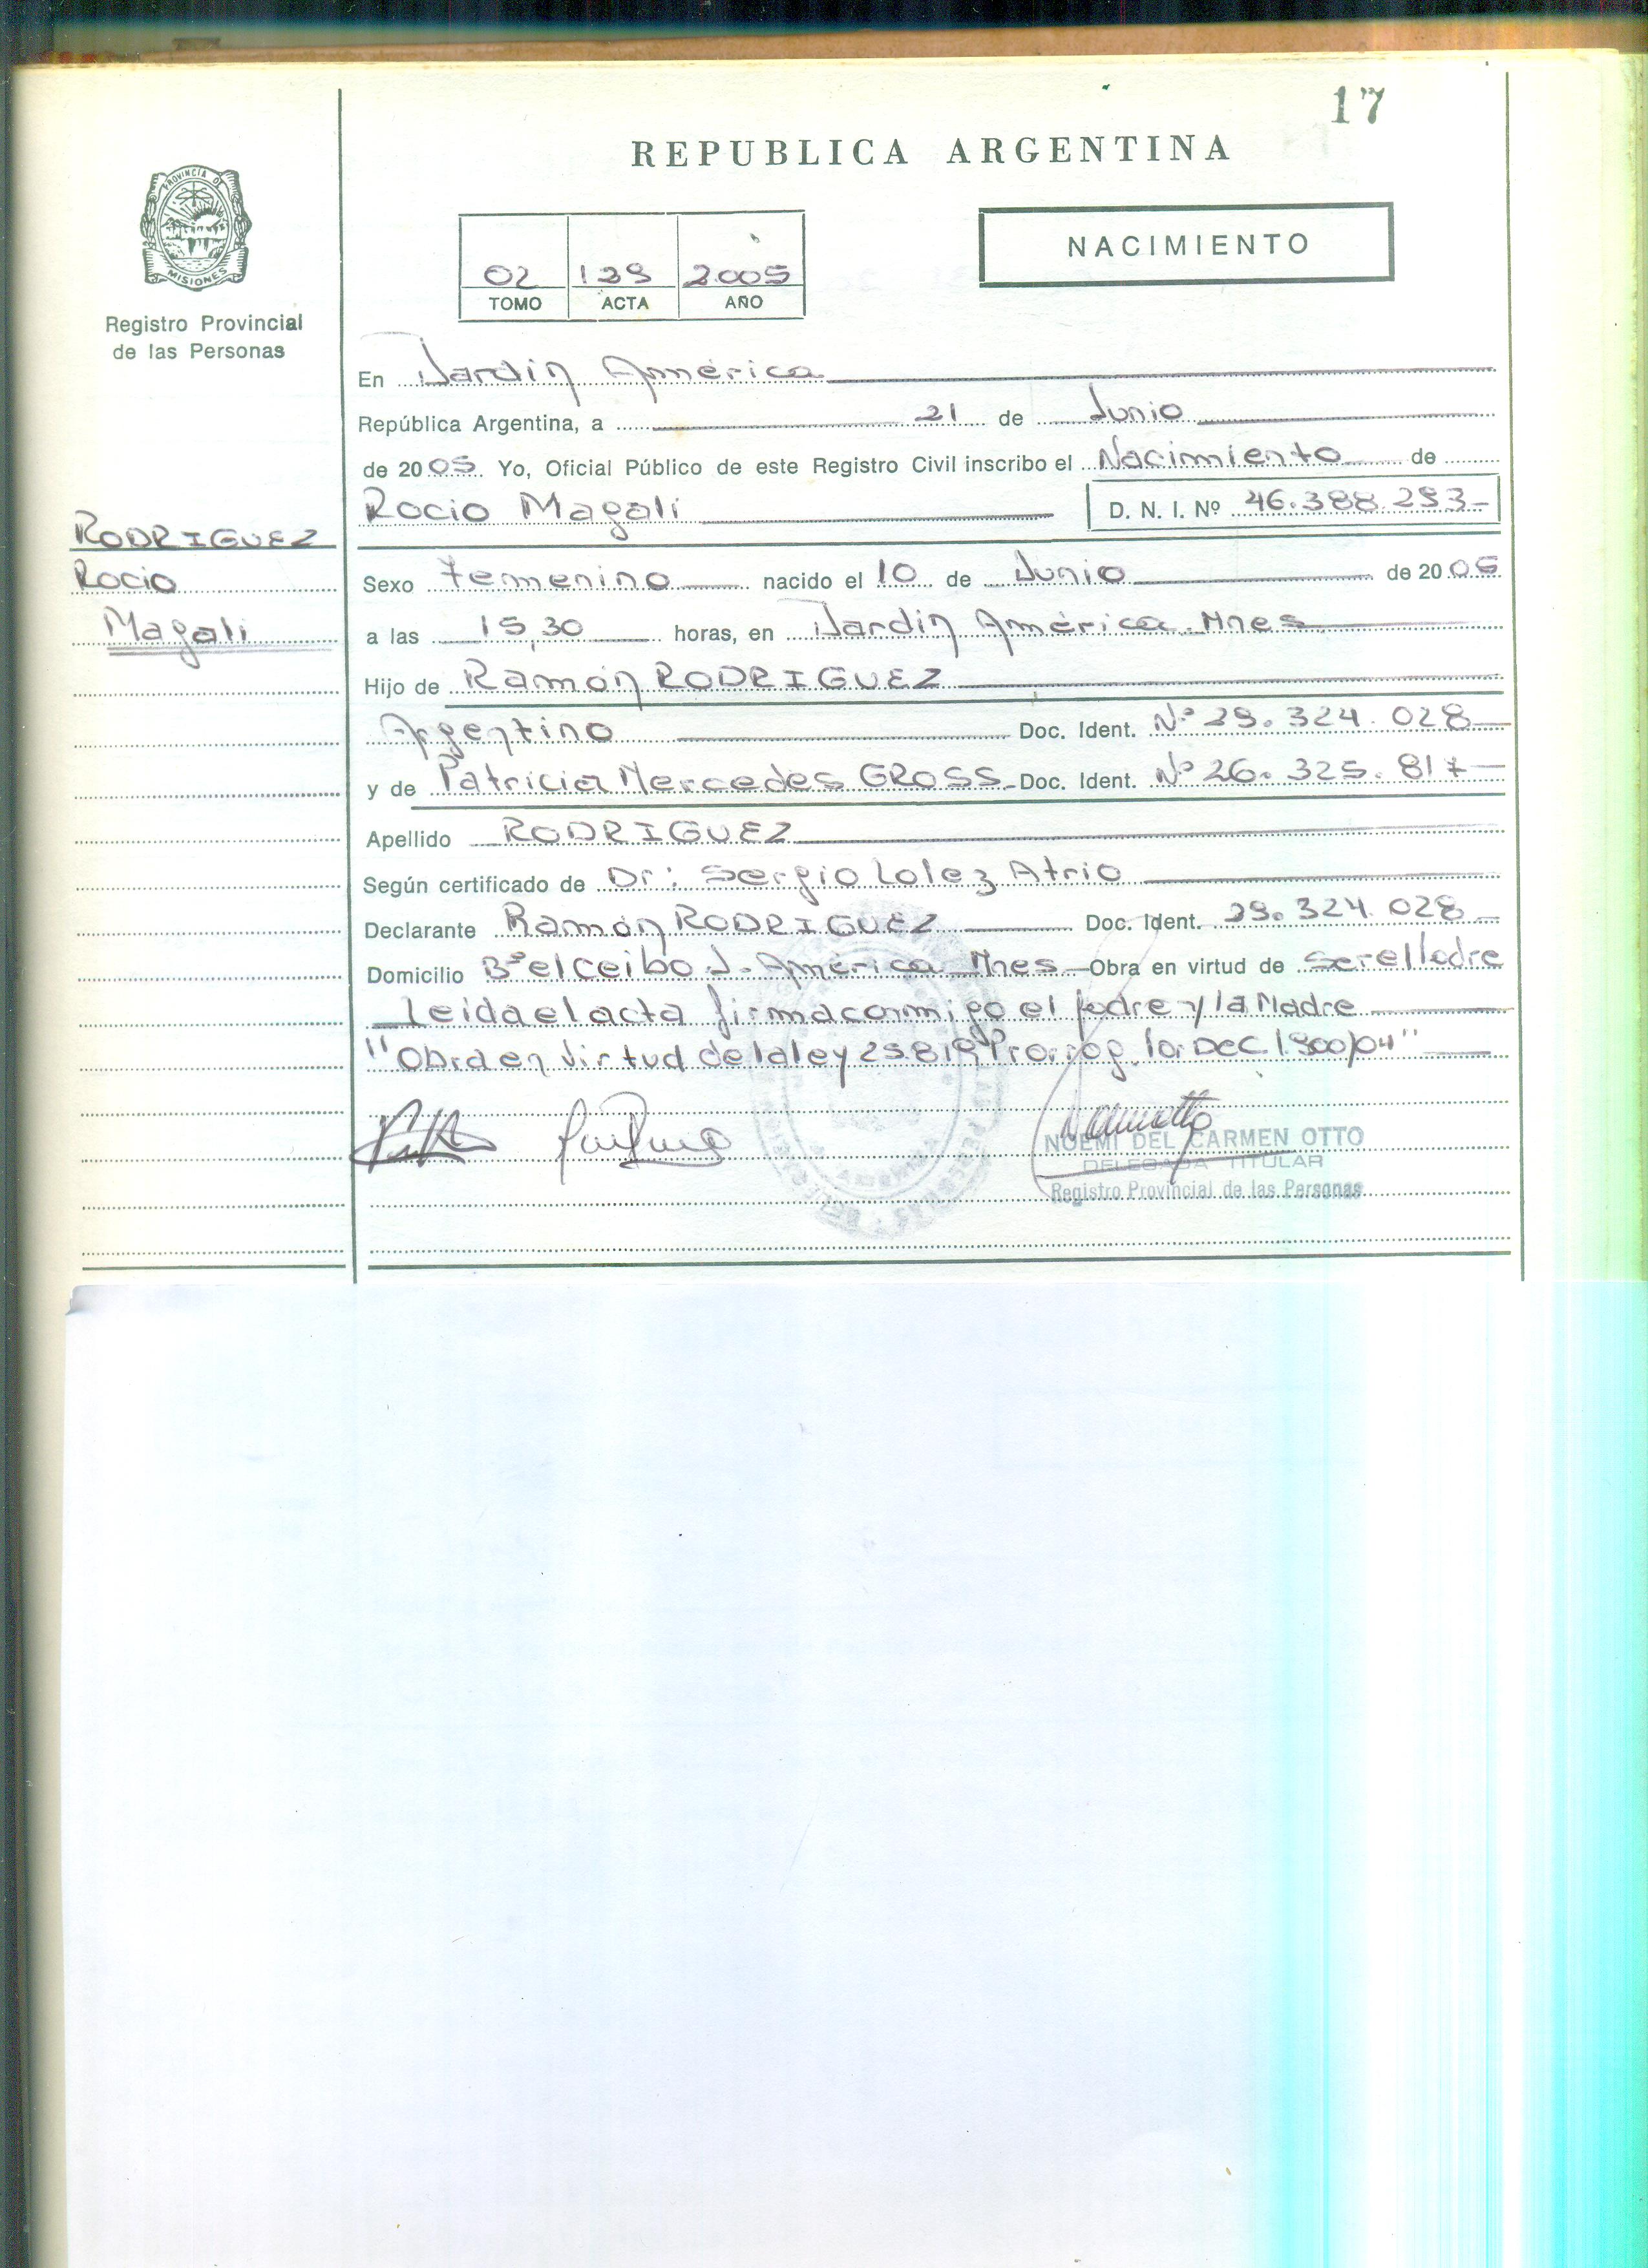 17
REPUBLICA ARGENTINA
NACIMIENTO
02 129 2005
TOMO ACTA AÑO
PROVINCIA DE
MISIONES
Registro Provincial
de las Personas
En Jardín América
República Argentina, a 21 de Junio
de 2005 Yo, Oficial Público de este Registro Civil inscribo el Nacimiento de
Rocio Magali D. N. I. Nº 46.388.293-
RODRIGUEZ
Rocio
Magali
Sexo Femenino nacido el 10 de Junio de 2005
a las 15,30 horas, en Jardín América. Mnes
Hijo de Ramón RODRIGUEZ
Argentino Doc. Ident. Nº 29.324.028
y de Patricia Mercedes GROSS Doc. Ident. Nº 26.325.817
Apellido RODRIGUEZ
Según certificado de Dr: Sergio Atrio
Declarante Ramón RODRIGUEZ Doc. Ident. 29.324.028
Domicilio Bº el ceibo J. América Mnes Obra en virtud de ser el Padre
Leida el acta firma conmigo el padre y la Madre
"Obra en virtud de la ley 25.819 Prorrog. Por DEC. 1.900/04"
NOEMI DEL CARMEN OTTO
DELEGADA TITULAR
Registro Provincial de las Personas